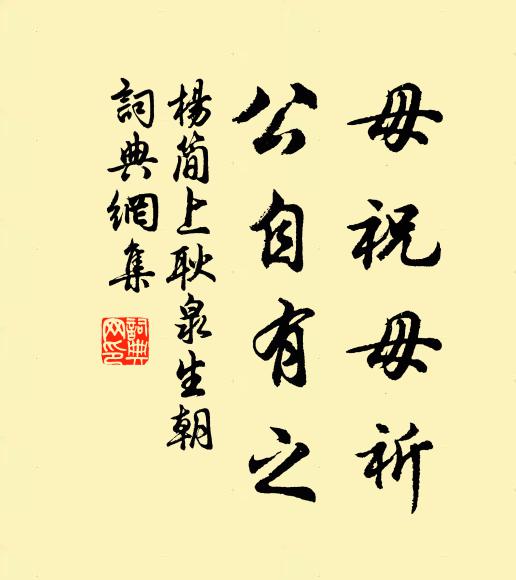 毋祝毋祈
公自有之
楊简上耿泉生朝
詞典網集
詞典
网印